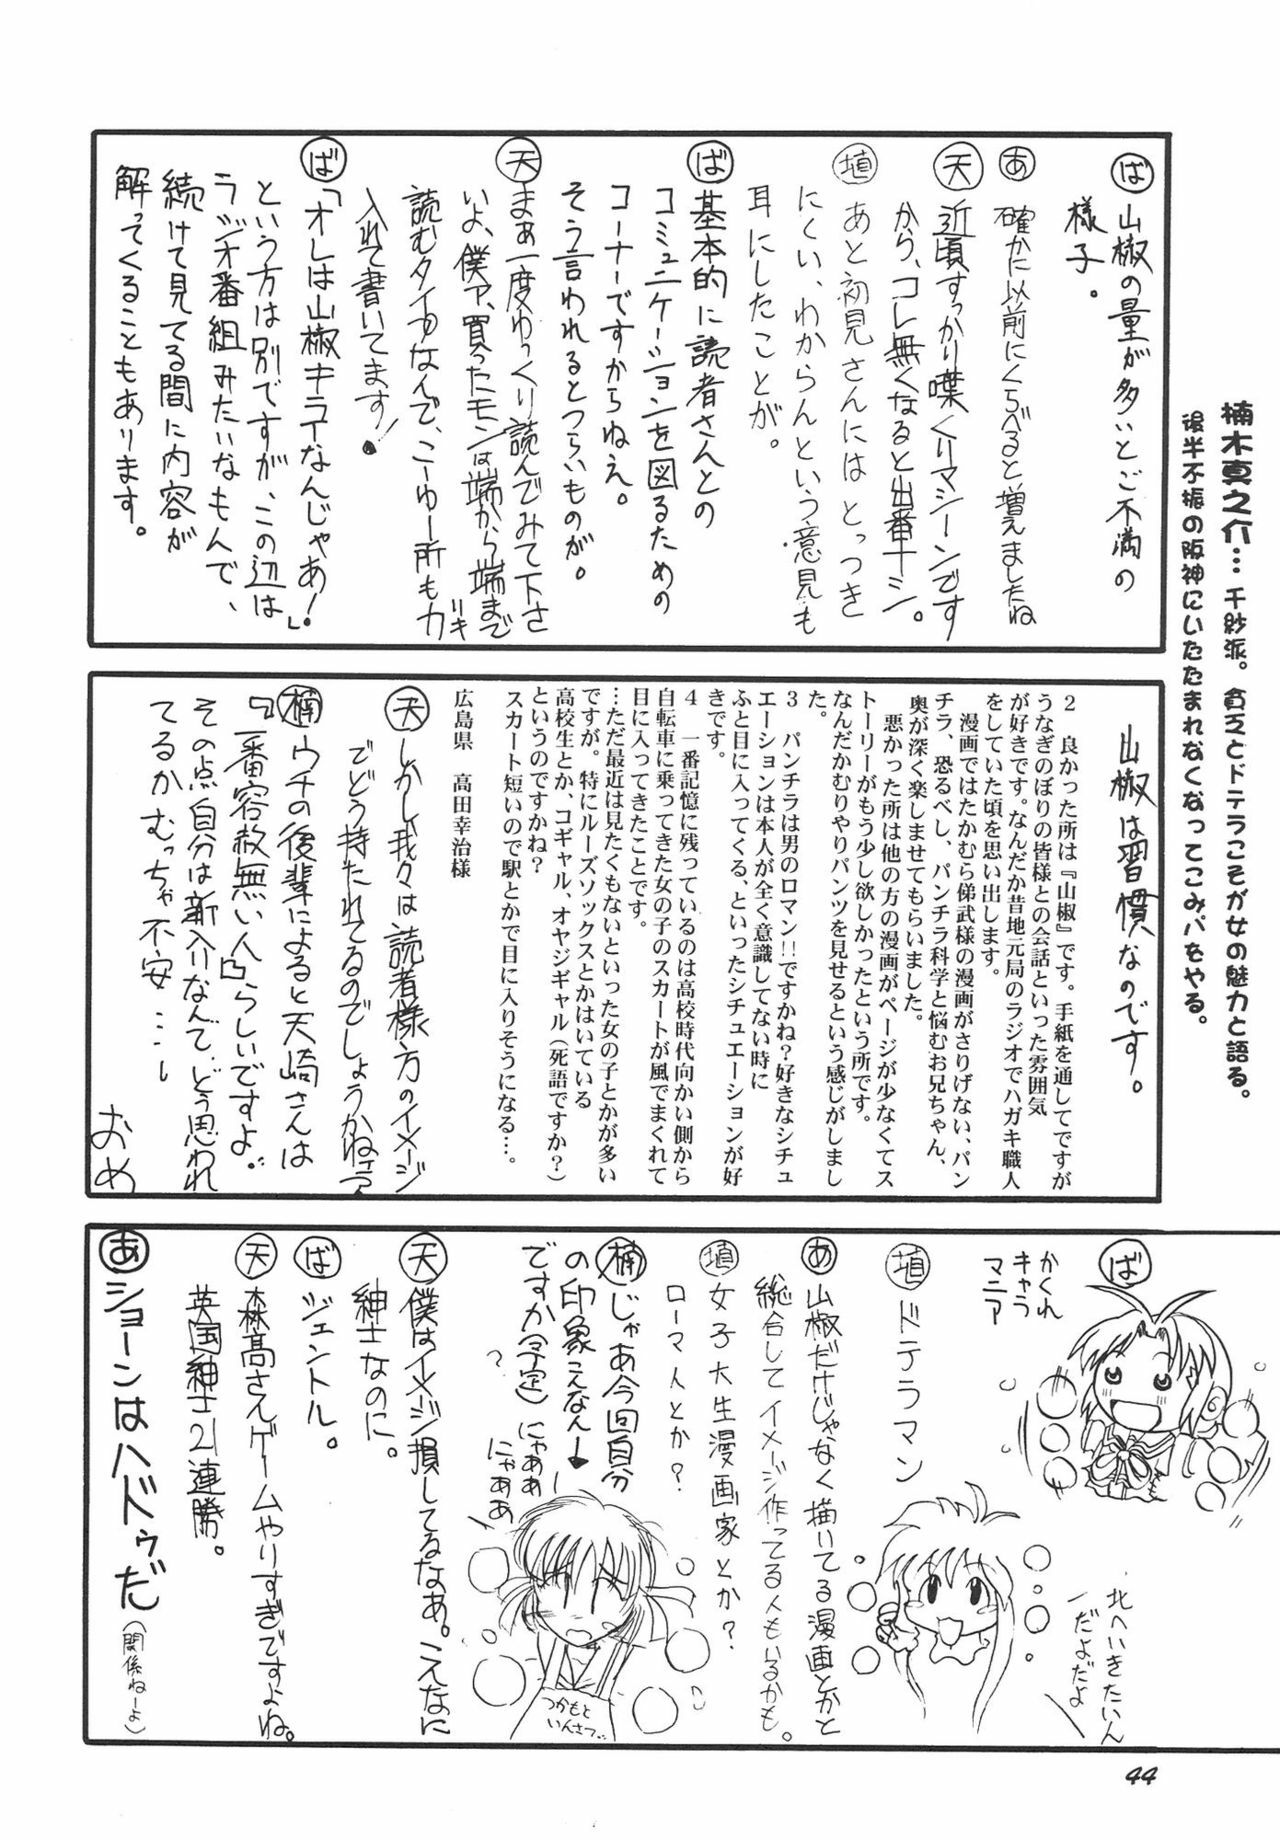 楠木真之介…千紗派。貧乏とドテラこそが女の魅力と語る。
後半不振の阪神にいたたまれなくなってこみパをやる。
ば 山椒の量が多いとご不満の
様子。
あ 確かに以前にくらべると増えましたね
天 近頃すっかり喋くりマシーンです
から、コレ無くなると出番ナシ。
埴 あと初見さんにはとっつき
にくい、わからんという意見も
耳にしたことが。
ば 基本的に読者さんとの
コミュニケーションを図るための
コーナーですからねえ。
そう言われるとつらいものが。
天 まぁ一度ゆっくり読んでみて下さ
いよ、僕ァ、買ったモンは端から端まで
読むタイプなんで、こーゆー所もカ
ドキ
入れて書いてます!
ば 「オレは山椒キライなんじゃあ!」
という方は別ですが、この辺は
ラジオ番組みたいなもんで、
続けて見てる間に内容が
解ってくることもあります。
山椒は習慣なのです。
2 良かった所は『山椒』です。手紙を通してですが
うなぎのぼりの皆様との会話といった雰囲気
が好きです。なんだか昔地元局のラジオでハガキ職人
をしていた頃を思い出します。
漫画ではたかむら悌武様の漫画がさりげない、パン
チラ、恐るべし、パンチラ科学と悩むお兄ちゃん、
奥が深く楽しませてもらいました。
悪かった所は他の方の漫画がページが少なくてス
トーリーがもう少し欲しかったという所です。
なんだかむりやりパンツを見せるという感じがしまし
た。
3 パンチラは男のロマン!!ですかね?好きなシチュ
エーションは本人が全く意識してない時に
ふと目に入ってくる、といったシチュエーションが好
きです。
4 一番記憶に残っているのは高校時代向かい側から
自転車に乗ってきた女の子のスカートが風でまくれて
目に入ってきたことです。
…ただ最近は見たくもないといった女の子とかが多い
ですが。特にルーズソックスとかはいている
高校生とか、コギャル、オヤジギャル(死語ですか?)
というのですかね?
スカート短いので駅とかで目に入りそうになる…。
広島県 高田幸治様
天 しかし我々は読者様方のイメージ
でどう持たれてるのでしょうかねェ
楠 ウチの後輩によると天崎さんは
『一番容赦無い人』らしいですよ。
その点自分は新入りなんで、どう思われ
てるかむっちゃ不安…。
おめ
ば
かくれ
キャラ
マニア
北へいきたいん
だよだよ
埴 ドテラマン
あ 山椒だけじゃなく描いてる漫画とかと
総合してイメージ作ってる人もいるかも。
埴 女子大生漫画家とか?
ローマ人とか?
楠 じゃあ今回自分
の印象こんなん
ですか(予定)にゃああ
?
にゃああ
つかもと
いんさつ
天 僕はイメージ損してるなあ。こんなに
紳士なのに。
ば ジェントル。
天 森高さんゲームやりすぎですよね。
英国紳士21連勝。
あ ショーンはハドゥだ(関係ねーよ)
44